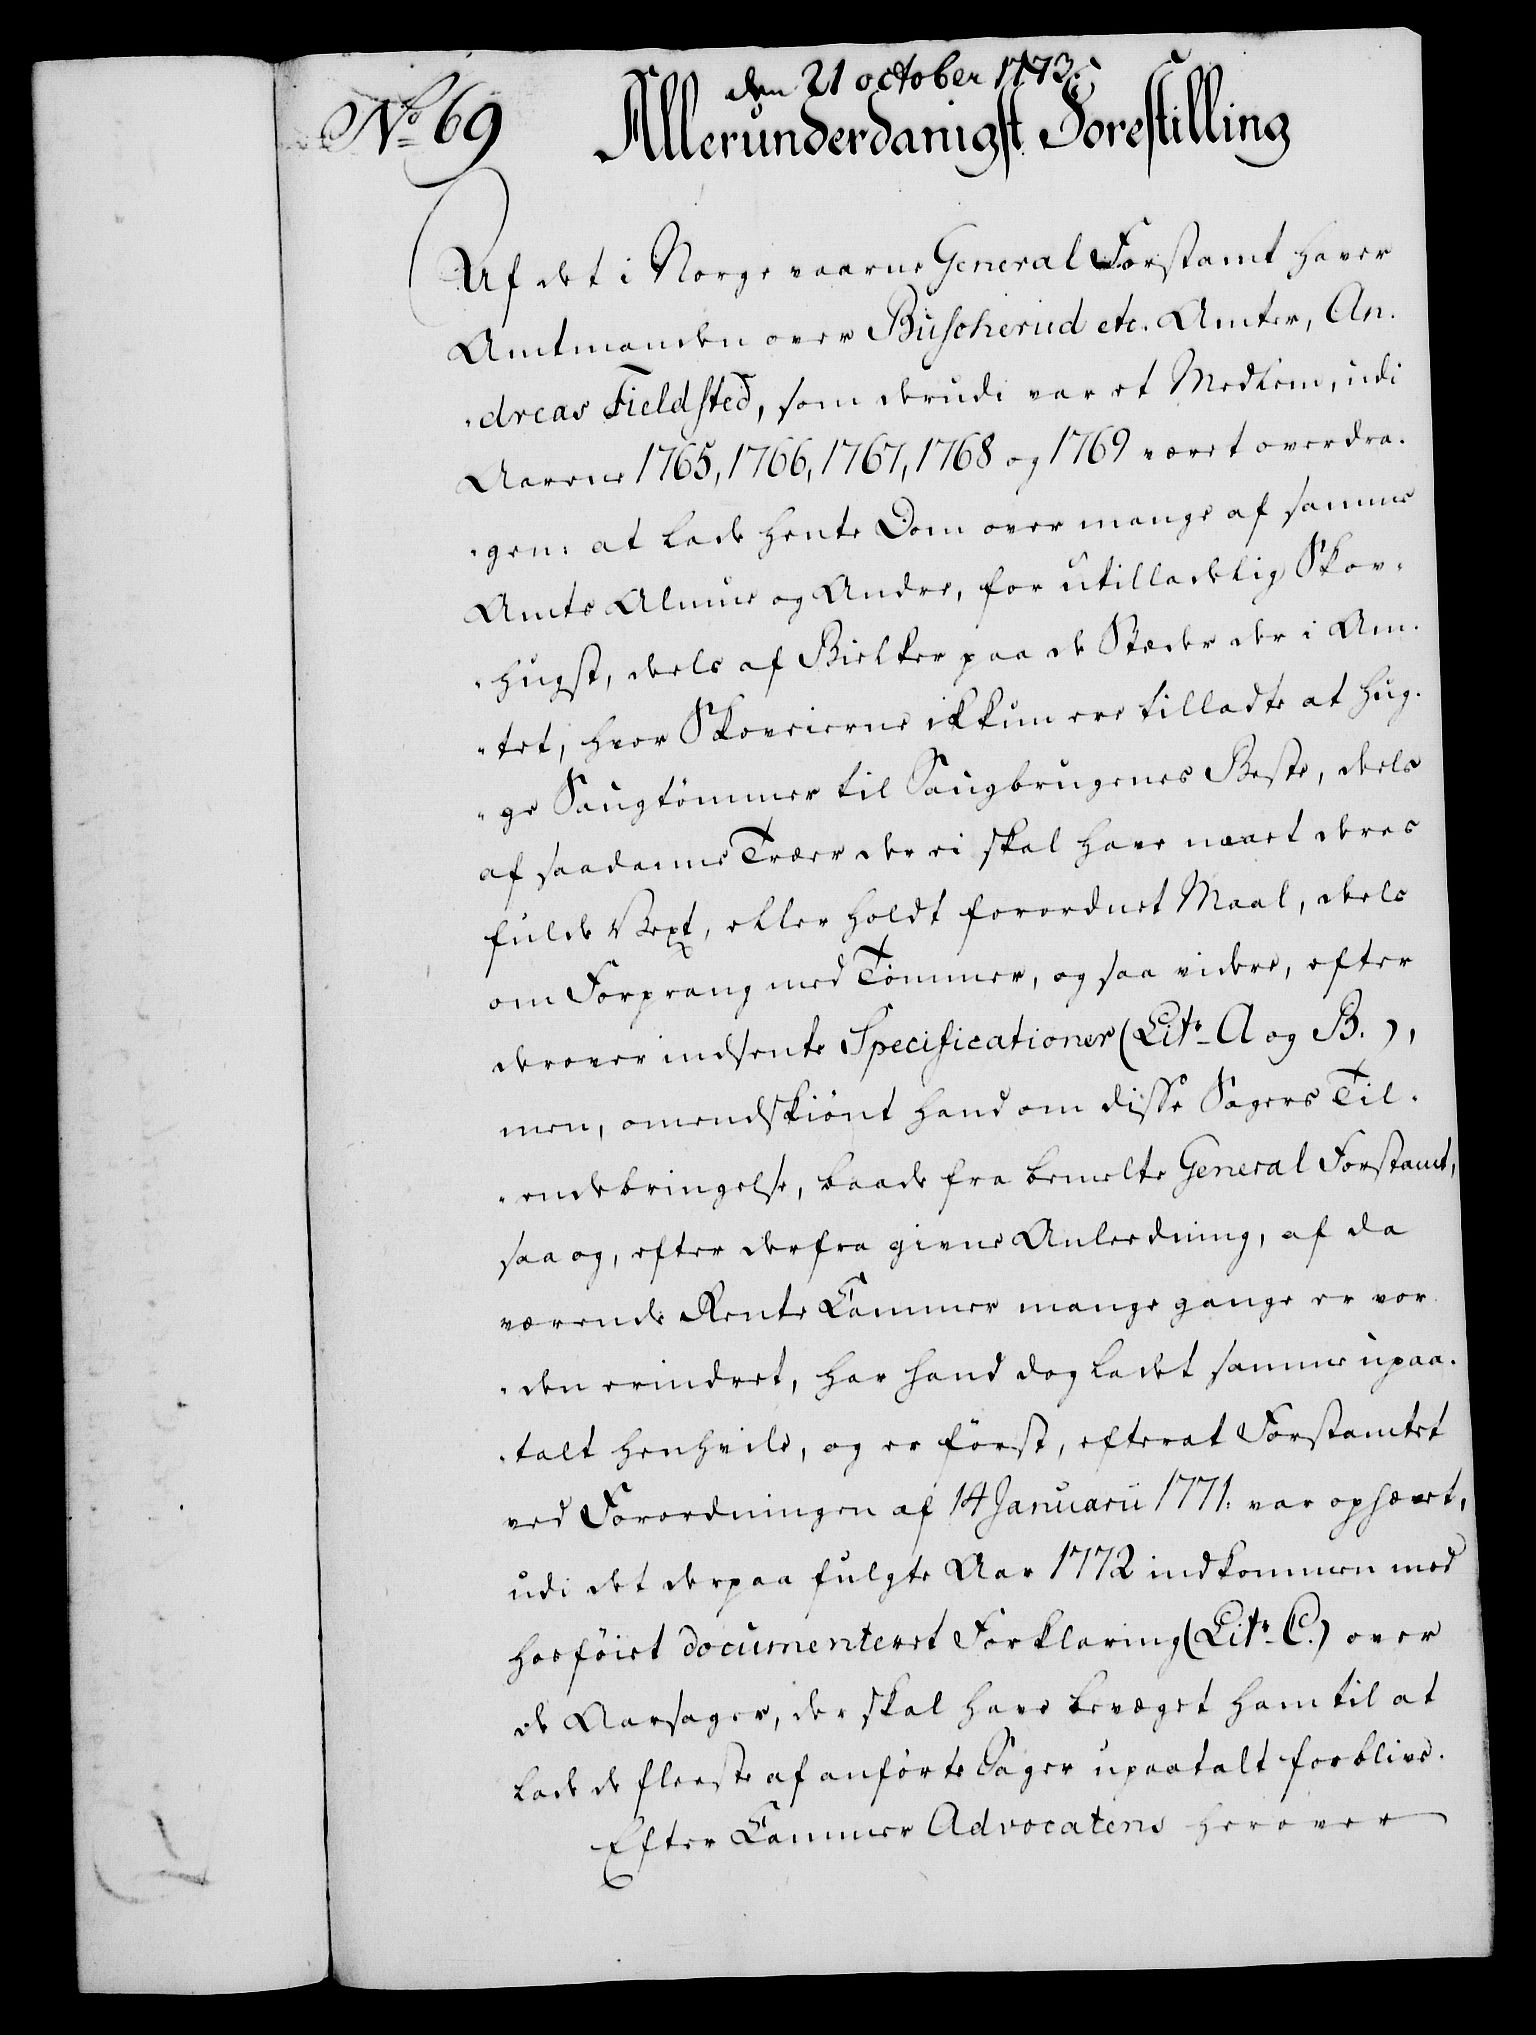 den 21 october 1773.
No 69 Allerunderdanigst Forestilling
Af det i Norge vaarne General Forstamt haver
Amtmanden over Buscherud etc. Amter, An-
-dreas Fieldsted, som derudi var et Medlem, udi
Aarene 1765, 1766, 1767, 1768 og 1769 været overdra-
-gen: at lade hente Dom over mange af samme
Amts Almue og Andre, for utilladelig Skov-
-hugst, deels af Bielker paa de Stæder der i Am-
-tet, hvor Skoveierne ikkun ere tilladte at hug-
-ge Saugtömmer til Saugbrugenes Beste, deels
af saadanne Træer der ei skal have naaet deres
fulde Vext, eller holdt forordnet Maal, deels
om Forprang med Tömmer, og saa videre, efter
derover indsente Specificationer (Litr A og B.),
men, omendskiönt hand om disse Sagers Til-
-endebringelse, baade fra bemelte General Forstamt,
saa og, efter derfra givne Anleedning, af da
værende Rente Cammer mange gange er vor
-den erindret, har hand dog ladet samme upaa-
-talt henhvile, og er först, efterat Forstamtet
ved Forordningen af 14 Januarii 1771. var ophævet,
udi det derpaa fulgte Aar 1772 indkommen med
hosföiet documenteret Forklaring (Litr C.) over
de Aarsager, der skal have bevæget ham til at
lade de fleeste af anförte Sager upaatalt forblive.
Efter Cammer Advocatens herover